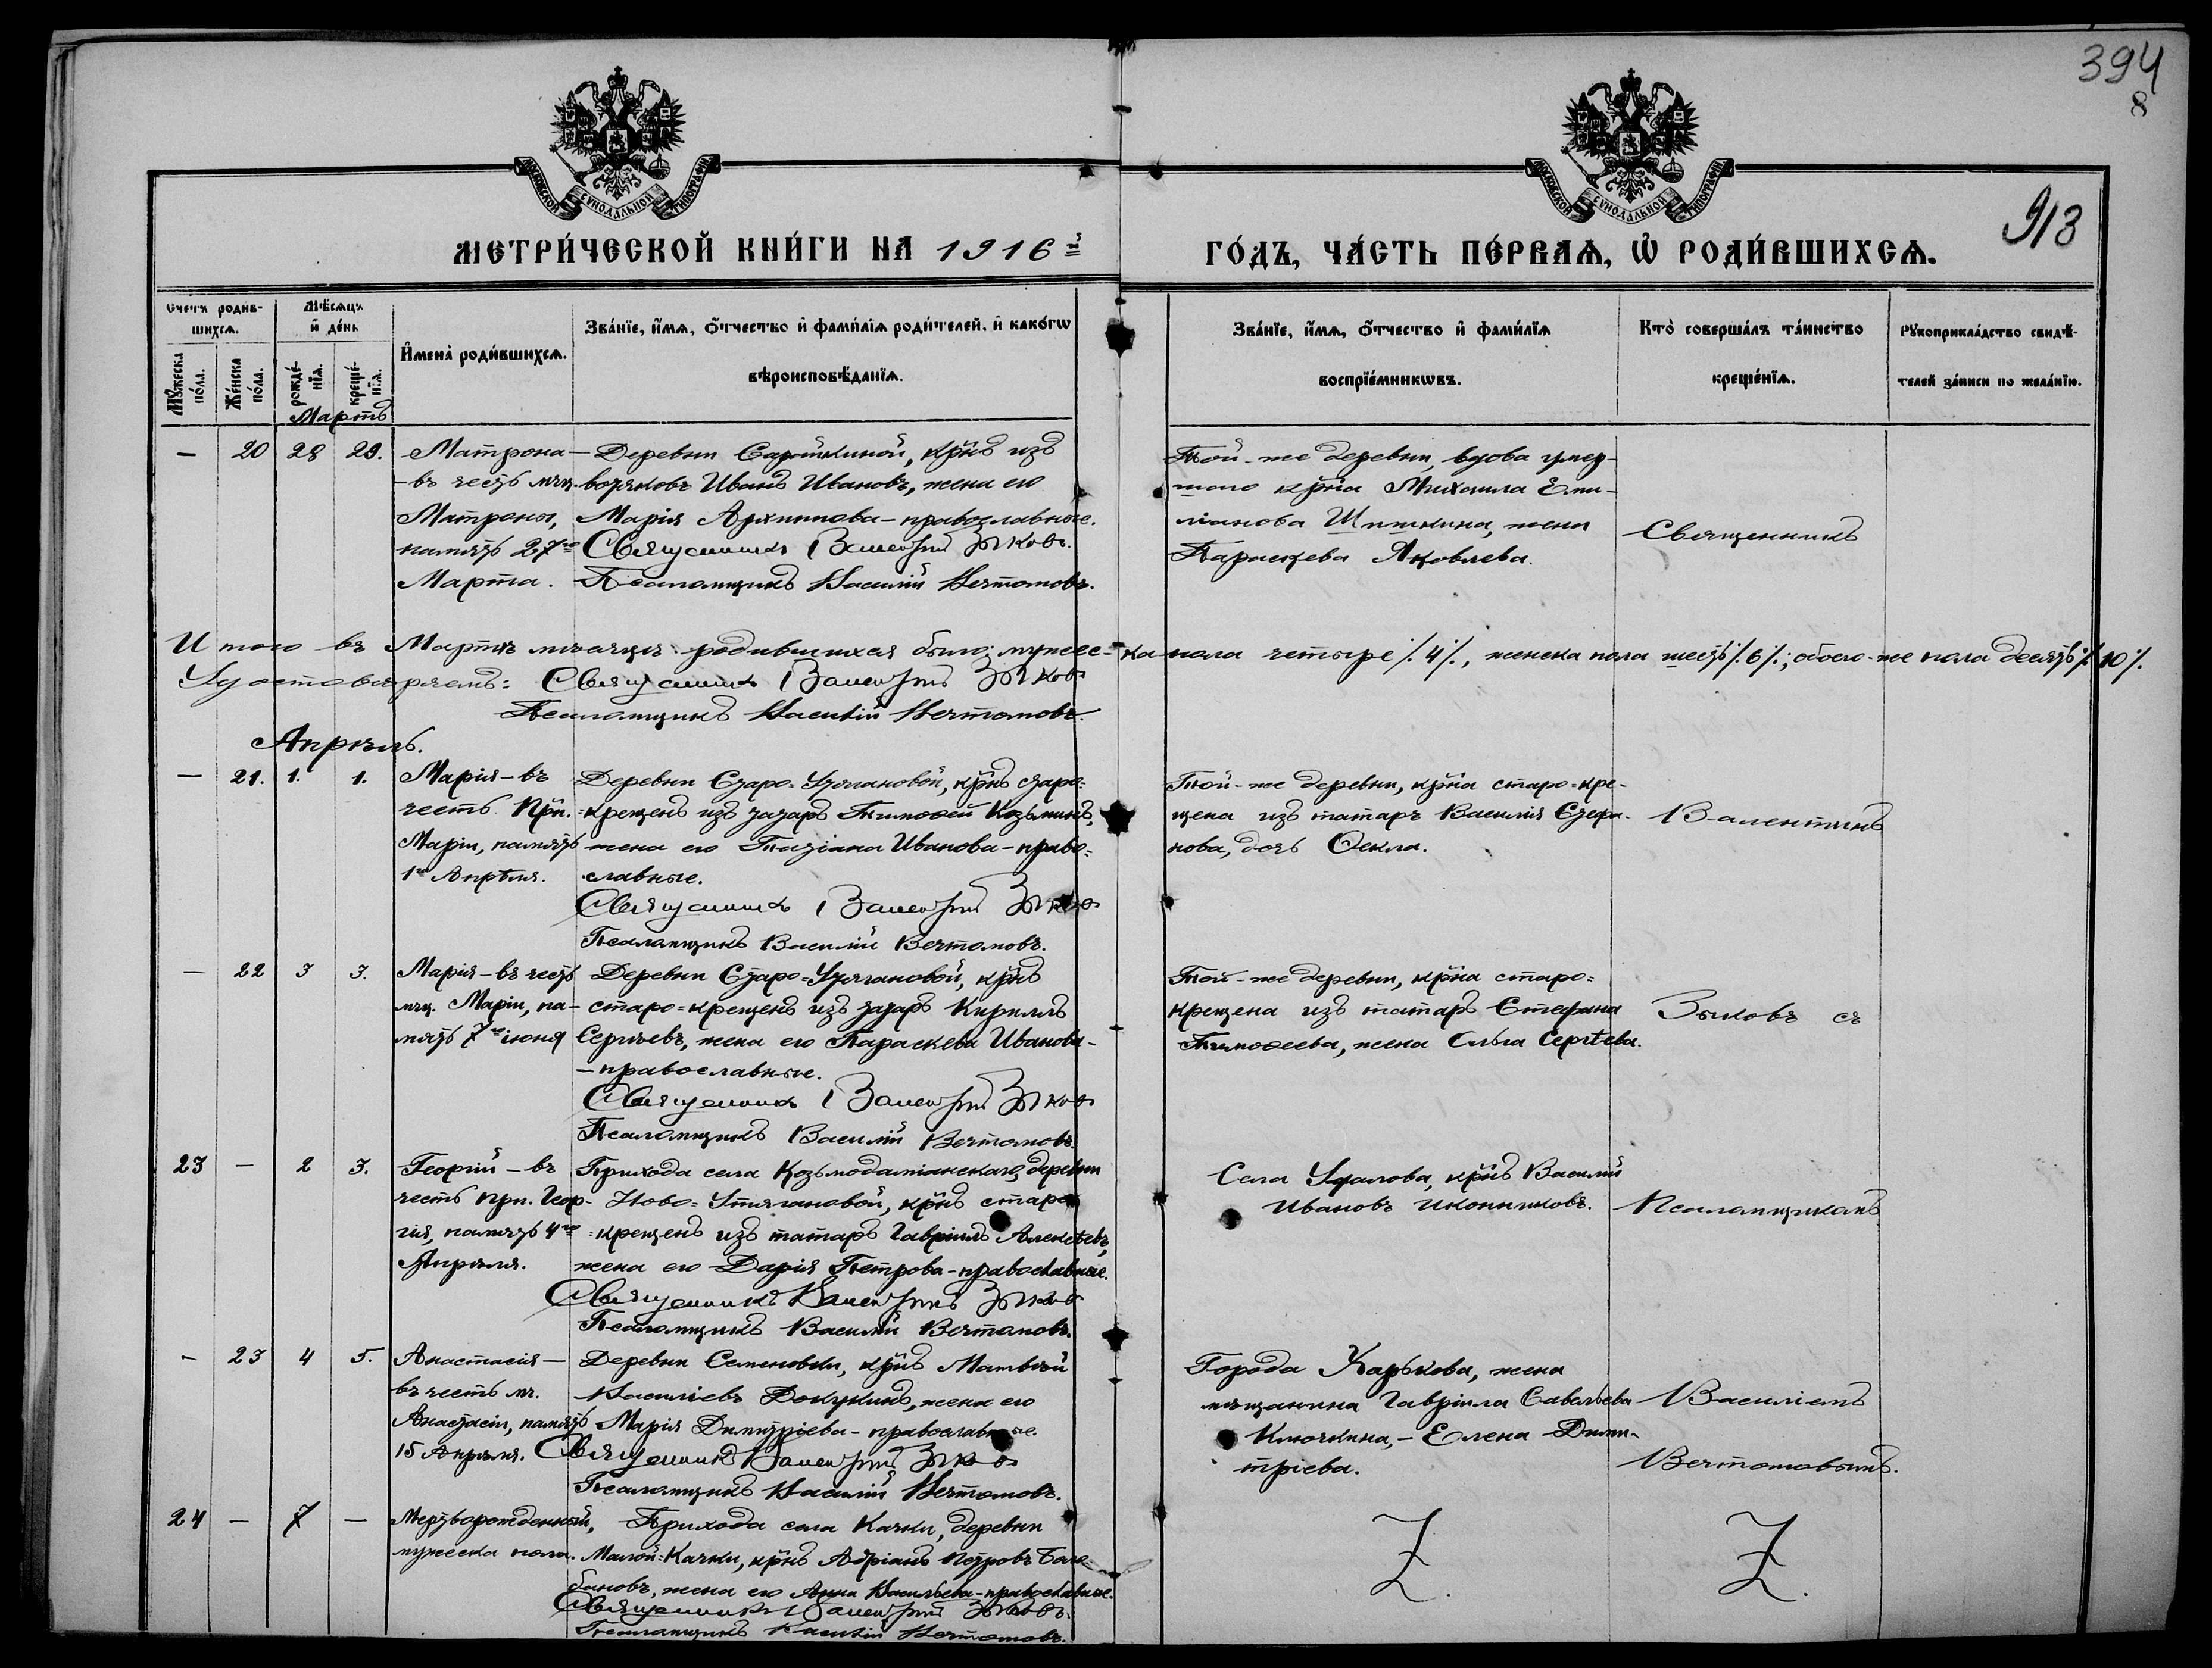 394
8
913
МОСКОВСКОЙ СУНОДАЛЬНОЙ ТИПОГРАФІИ
МОСКОВСКОЙ СУНОДАЛЬНОЙ ТИПОГРАФІИ
МЕТРИ́ЧЕСКОЙ КНИ́ГИ НА 1916й
ГО́ДЪ, ЧА́СТЬ ПЕ́РВАЯ, Ѽ РОДИ́ВШИХСЯ.
Счетъ родив-
шихся.
Мѣсяцъ
и день
Мужеска
пола.
Женска
пола.
рожде-
нія.
креще-
нія.
Имена родившихся.
Званіе, имя, отчество и фамилія родителей, и какогѡ
вѣроисповѣданія.
Званіе, имя, отчество и фамилія
воспріемникѡвъ.
Кто совершалъ таинство
крещенія.
Рукоприкладство свидѣ-
телей записи по желанію.
Мартъ
— 20 28 29.
Матрона —
въ честь мч.
Матроны,
память 27го
Марта.
Деревни, крнъ изъ
вотяковъ Иванъ Ивановъ, жена его
Марія Архиппова – православные.
Священникъ Валентинъ Зыковъ.
Псаломщикъ Василій Вечтомовъ.
Той-же деревни, вдова умер-
шаго крна Михаила Еми-
ліанова Шишкина, жена
Параскева Яковлева.
Священникъ
Итого въ Мартѣ мѣсяцѣ родившихся было: мужес-ка пола четыре /.4/., женска пола шесть /.6/.; обоего-же пола десять /.10/.
Удостовѣряемъ: Священникъ Валентинъ Зыковъ
Псаломщикъ Василій Вечтомовъ.
Апрѣль.
— 21. 1. 1.
Марія – въ
честь Прп.
Маріи, память
1го Апрѣля.
Деревни Старо-Утягановой, крнъ старо-
крещенъ изъ татаръ Тимофей Козьминъ,
жена его Татіана Иванова – право-
славные.
Священникъ Валентинъ Зыковъ
Псаломщикъ Василій Вечтомовъ.
Той-же деревни, крна старо-кре-
щена изъ татаръ Василія Стефа-
нова, дочь Ѳекла.
Валентинъ
— 22 3 3.
Марія – въ честь
мц. Маріи, па-
мять 7го іюня
Деревни Старо-Утягановой, крнъ
старо-крещенъ изъ татаръ Кириллъ
Сергѣевъ, жена его Параскева Иванова –
– православные.
Священникъ Валентинъ Зыковъ
Псаломщикъ Василій Вечтомовъ.
Той-же деревни, крна старо-
крещена изъ татаръ Стефана
Тимофеева, жена Ольга Сергѣева.
Зыковъ съ
23 — 2 3.
Георгій – въ
честь прп. Геор-
гія, память 4го
Апрѣля.
Прихода села Козьмодаміанскаго, деревни
Ново-Утягановой, крнъ старо-
крещенъ изъ татаръ Гавріилъ Алексѣевъ,
жена его Дарія Петрова – православные.
Священникъ Валентинъ Зыковъ
Псаломщикъ Василій Вечтомовъ.
Села, крнъ Василій
Ивановъ Иконниковъ.
Псаломщикомъ
— 23 4 5.
Анастасія —
въ честь мч.
Анастасіи, память
15 Апрѣля.
Деревни Семеновки, крнъ Матвѣй
Василіевъ Докукинъ, жена его
Марія Димитріева – православные.
Священникъ Валентинъ Зыковъ
Псаломщикъ Василій Вечтомовъ.
Города Харькова, жена
мѣщанина Гавріила Савельева
Ключкина, – Елена Дими-
тріева.
Василіемъ
Вечтомовымъ.
24 — 7 —
Мертворожденный,
мужеска пола.
Прихода села Качки, деревни
Малой-Качки, крнъ Адріанъ Петровъ Бала-
бановъ, жена его Анна Васильева – православные.
Священникъ Валентинъ Зыковъ.
Псаломщикъ Василій Вечтомовъ.
Z. Z.